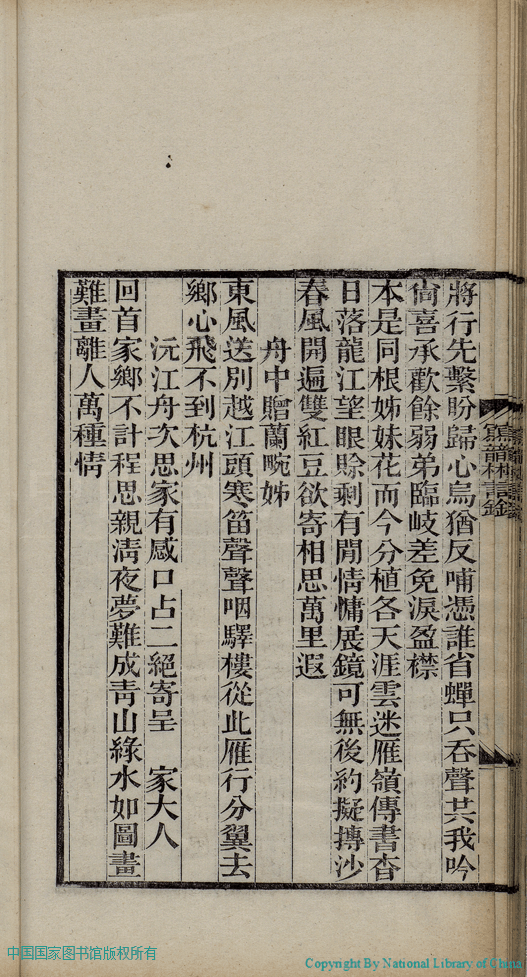 將行先繫盼歸心烏猶反哺憑誰省蟬只吞聲共我吟
尙喜承歡餘弱弟臨岐差免淚盈襟
本是同根姊妹花而今分植各天涯雲迷雁嶺傳書杳
日落龍江望眼賖剩有閒情慵展鏡可無後約擬摶沙
春風開遍雙紅豆欲寄相思萬里遐
舟中贈蘭畹姊
東風送別越江頭寒笛聲聲咽驛樓從此雁行分翼去
鄉心飛不到杭州
沅江舟次思家有感口占二絕寄呈 家大人
回首家鄉不計程思親淸夜夢難成靑山綠水如圖畫
難畫離人萬種情
中国国家图书馆版权所有
Copyright By National Library of China